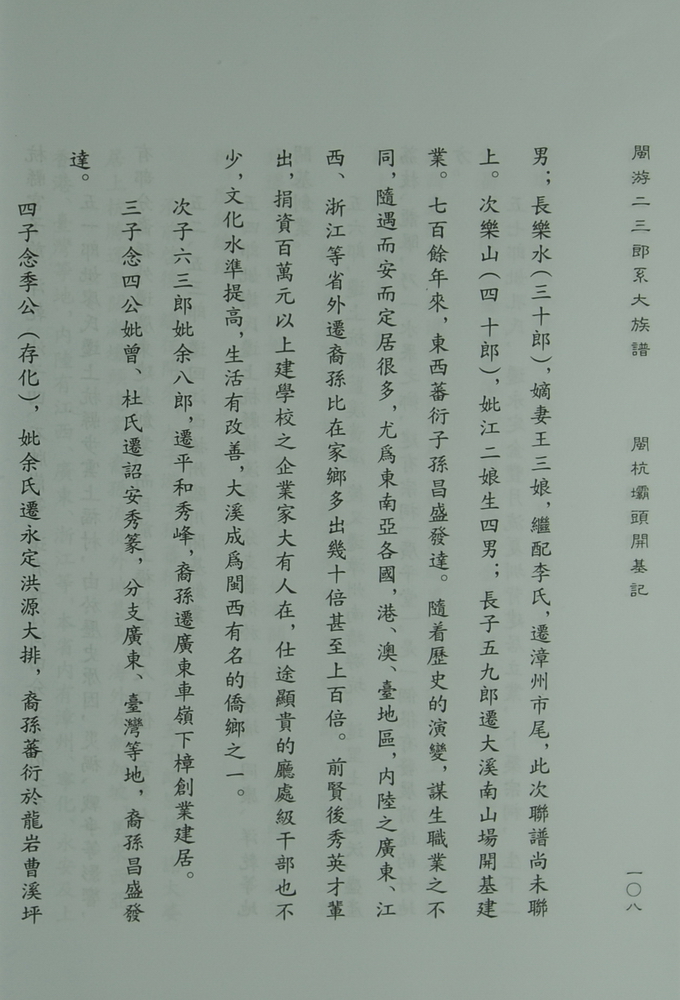 閩游二三郎系大族譜　閩杭壩頭開基記　一〇八
男；長樂水（三十郎），嫡妻王三娘，繼配李氏，遷漳州市尾，此次聯譜尚未聯
上。次樂山（四十郎），妣江二娘生四男；長子五九郎遷大溪南山場開基建
業。七百餘年來，東西蕃衍子孫昌盛發達。隨着歷史的演變，謀生職業之不
同，隨遇而安而定居很多，尤爲東南亞各國，港、澳、臺地區，内陸之廣東、江
西、浙江等省外遷裔孫比在家鄉多出幾十倍甚至上百倍。前賢後秀英才輩
出，捐資百萬元以上建學校之企業家大有人在，仕途顯貴的廳處級干部也不
少，文化水準提高，生活有改善，大溪成爲閩西有名的僑鄉之一。
次子六三郎妣余八郎，遷平和秀峰，裔孫遷廣東車嶺下樟創業建居。
三子念四公妣曾、杜氏遷詔安秀篆，分支廣東、臺灣等地，裔孫昌盛發
達。
四子念季公（存化），妣余氏遷永定洪源大排，裔孫蕃衍於龍岩曹溪坪